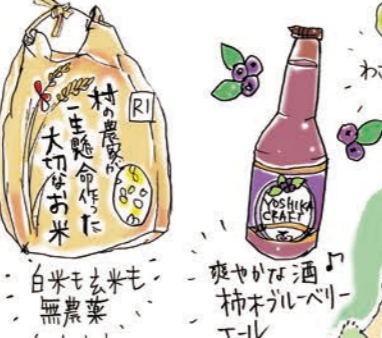 村の農家が
一生懸命作った
大切なお米
R1
白米も玄米も
無農薬
YOSHIKA
CRAFT
爽やかな酒♪
柿木ブルーベリー
エール
わさ